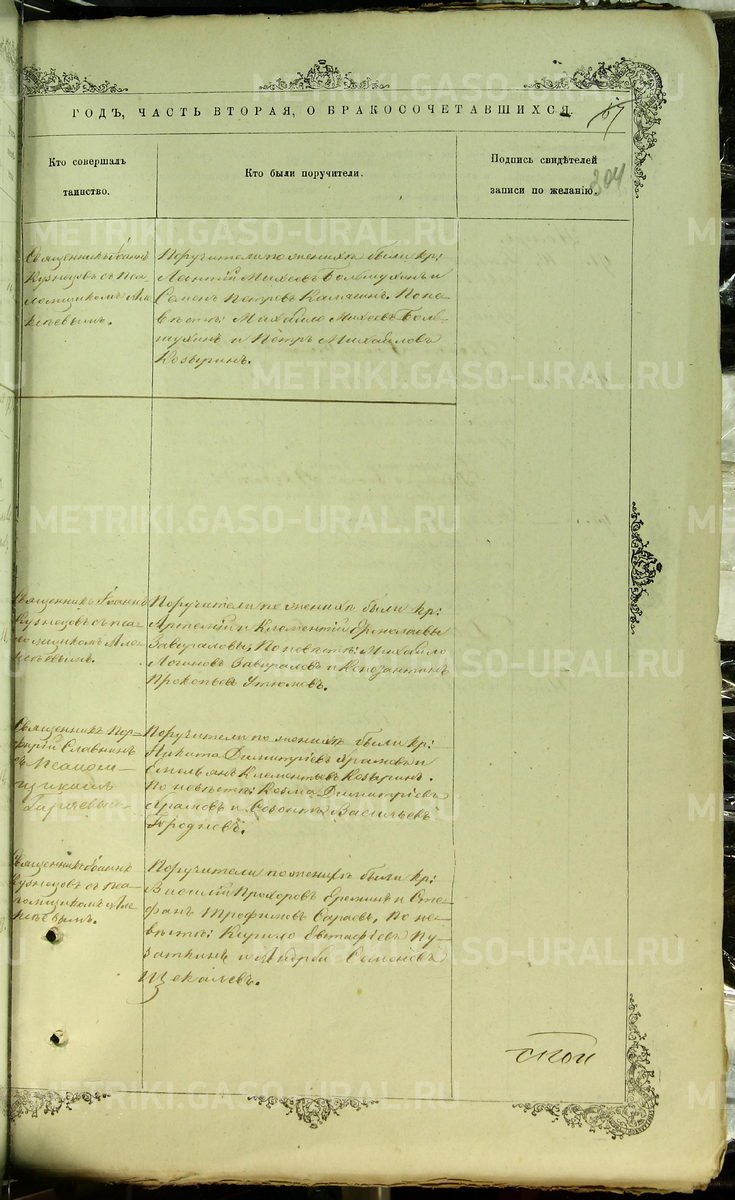 METRIKI.GASO-URAL.RU
ГОДЪ, ЧАСТЬ ВТОРАЯ, О БРАКОСОЧЕТАВШИХСЯ.
67
Кто совершалъ
таинство.
Кто были поручители.
Подпись свидѣтелей
записи по желанію.
204
Священникъ Іоаннъ
Кузнецовъ съ пса-
ломщикомъ Але-
ксѣевымъ.
Поручители по женихѣ были кр:
Леонтій Михеевъ и
Семенъ Петровъ Калягинъ. По не-
вѣстѣ: Михайло Михеевъ
и Петръ Михайловъ
Козыринъ.
Священникъ Іоаннъ
Кузнецовъ съ пса-
ломщикомъ Але-
ксѣевымъ.
Поручители по женихѣ были кр:
Артемій и Клементій Ермолаевы
Завираловы, По невѣстѣ: Михайло
Логиновъ Завираловъ и Констан
Прокопьевъ Утюмовъ.
Священникъ Пор-
фирій Славнинъ
съ Псалом-
щикомъ
Поручители по женихѣ были кр:
Никита Димитріевъ и
Емельянъ Клементьевъ Козыринъ.
По невѣстѣ: Козма Димитріевъ
и Васильевъ
Священникъ Іоаннъ
Кузнецовъ съ пса-
ломщикомъ Але-
ксѣевымъ.
Поручители по женихѣ были кр:
Василій Прохоровъ Еремин и Сте-
фанъ Трофимовъ Сараевъ, По не-
вѣстѣ: Кирило Евстафіевъ Пу-
заткинъ и Андрей Семеновъ
Щекалевъ.
METRIKI.GASO-URAL.RU
METRIKI.GASO-URAL.RU
METRIKI.GASO-URAL.RU